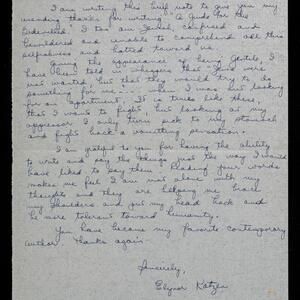 I am writing this brief note to give you my
unending thanks for writing "A Guide for the
Bedevilled." I too am Jewish, confused and
bewildered and unable to comprehend all this
selfishness and hatred toward us.
Giving the appearance of being Gentile, I
have been told in whispers that Jews were
not wanted, but that they would try to do
something for me — when I was out looking
for an apartment. It is tricks like these,
that I want to fight but looking at my
aggressor I only turn sick to my stomach
and fight back a vomiting sensation.
I am grateful to you for having the ability
to write and say the things that the way I would
have liked to say them. Reading your words
makes me feel I am not alone with my
thoughts and they are helping me brace
my shoulders and put my head back and
be more tolerant toward humanity.
You have become my favorite contemporary
author. Thanks again.
Sincerely,
Elynor